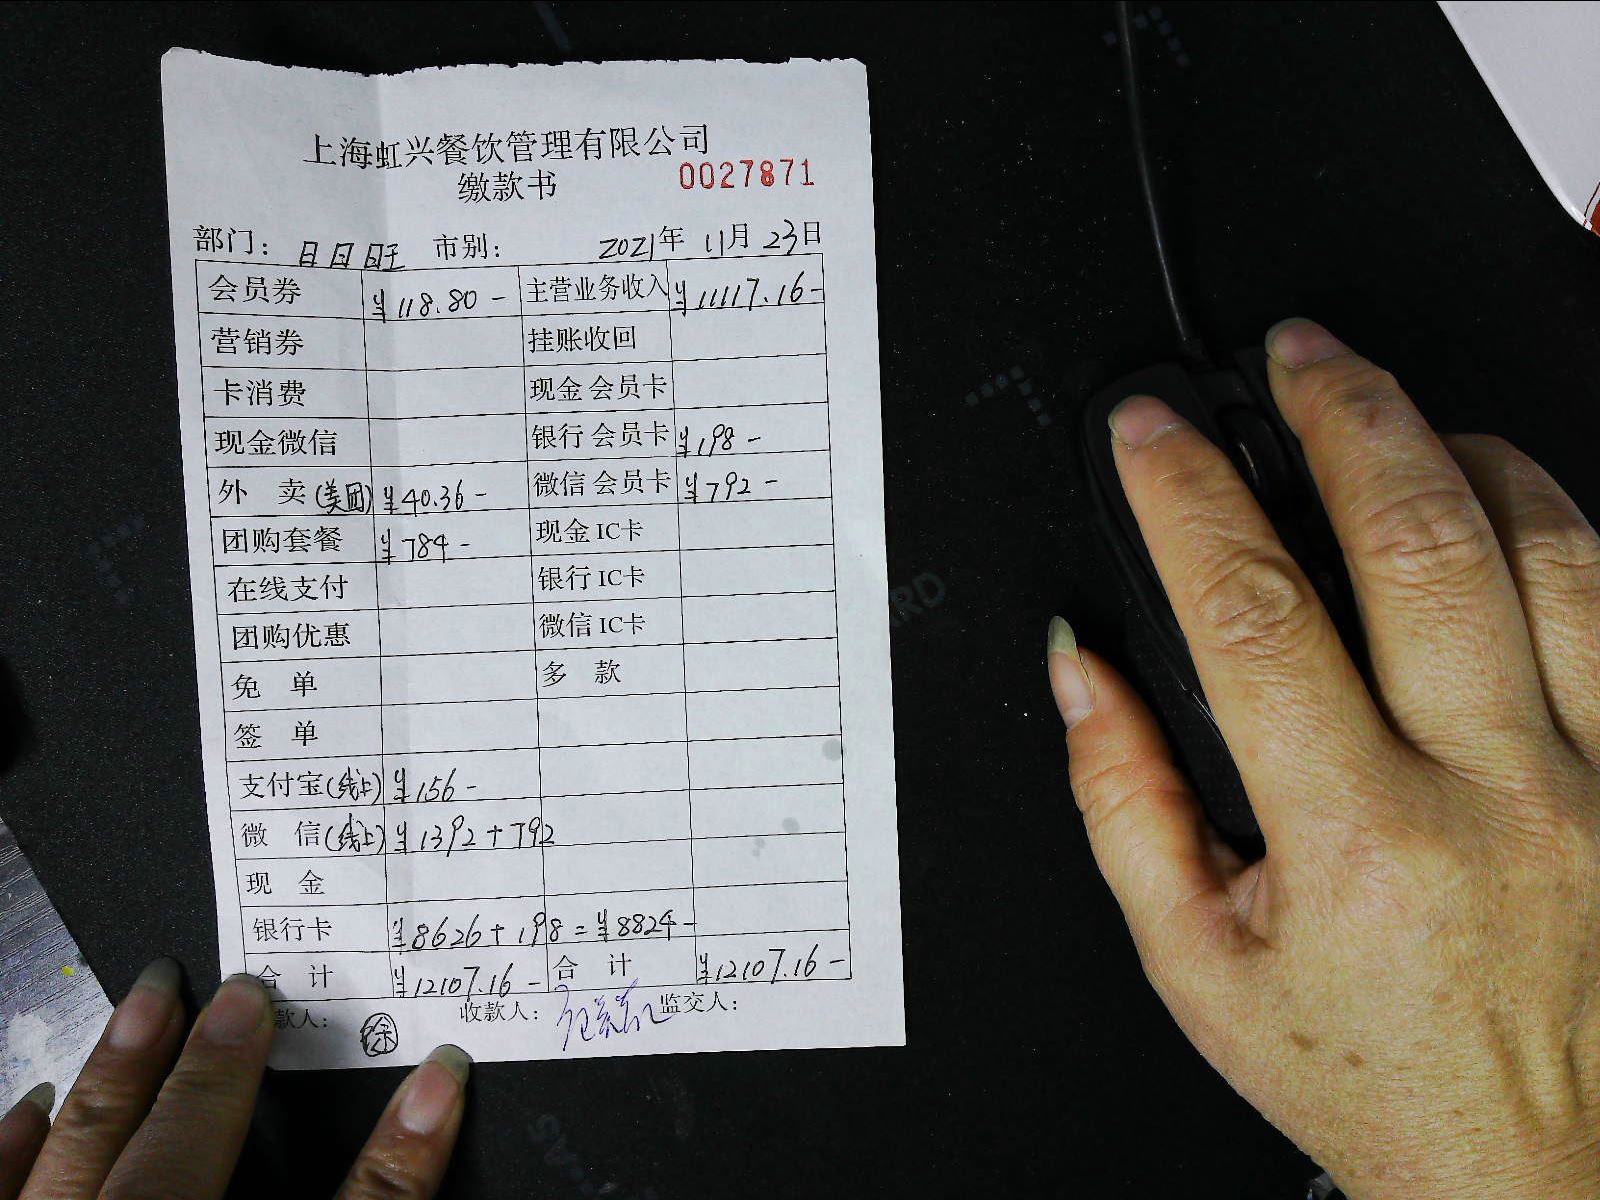 上海虹兴餐饮管理有限公司
缴款书 0027871
部门: 日日旺 市别: 2021年 11月 23日
会员券 ¥118.80- 主营业务收入 ¥11117.16-
营销券 挂账收回
卡消费 现金 会员卡
现金微信 银行 会员卡 ¥198-
外 卖(美团) ¥40.36- 微信 会员卡 ¥792-
团购套餐 ¥784- 现金 IC卡
在线支付 银行 IC卡
团购优惠 微信 IC卡
免 单 多 款
签 单
支付宝(线上) ¥156-
微 信(线上) ¥1392+792
现 金
银行卡 ¥8626+198=¥8824-
合 计 ¥12107.16- 合 计 ¥12107.16-
款人: 徐 收款人: 监交人: